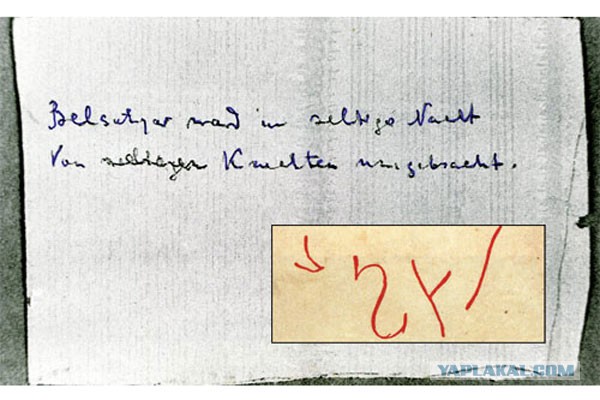 Belsatzar ward in selbiger Nacht
Von selbigen Knechten umgebracht.
YAPLAKAL.COM